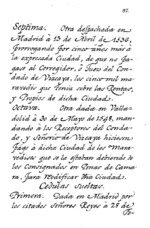 Septima. Otra despachada en
Madrid à 13 de Abril de 1536,
prorrogando por cinco años mas à
la expresada Ciudad, de que no pa-
gase al Corregidor, ò Juez del Con-
dado de Vizcaya, los cinco mil ma-
ravedis que tenia sobre las Rentas,
y Propios de dicha Ciudad.
Octava. Otra dada en Vallado-
lid à 30 de Mayo de 1548, man-
dando à los Receptores del Conda-
do, y Señorio de Vizcaya hiciesen
pago à dicha Ciudad de los Mara-
vedises que à la
consignados en
para reedificar dha Ciudad.
Cedulas Sueltas.
Primera. Dada en Madrid por
los citados Señores Reyes à 23 de